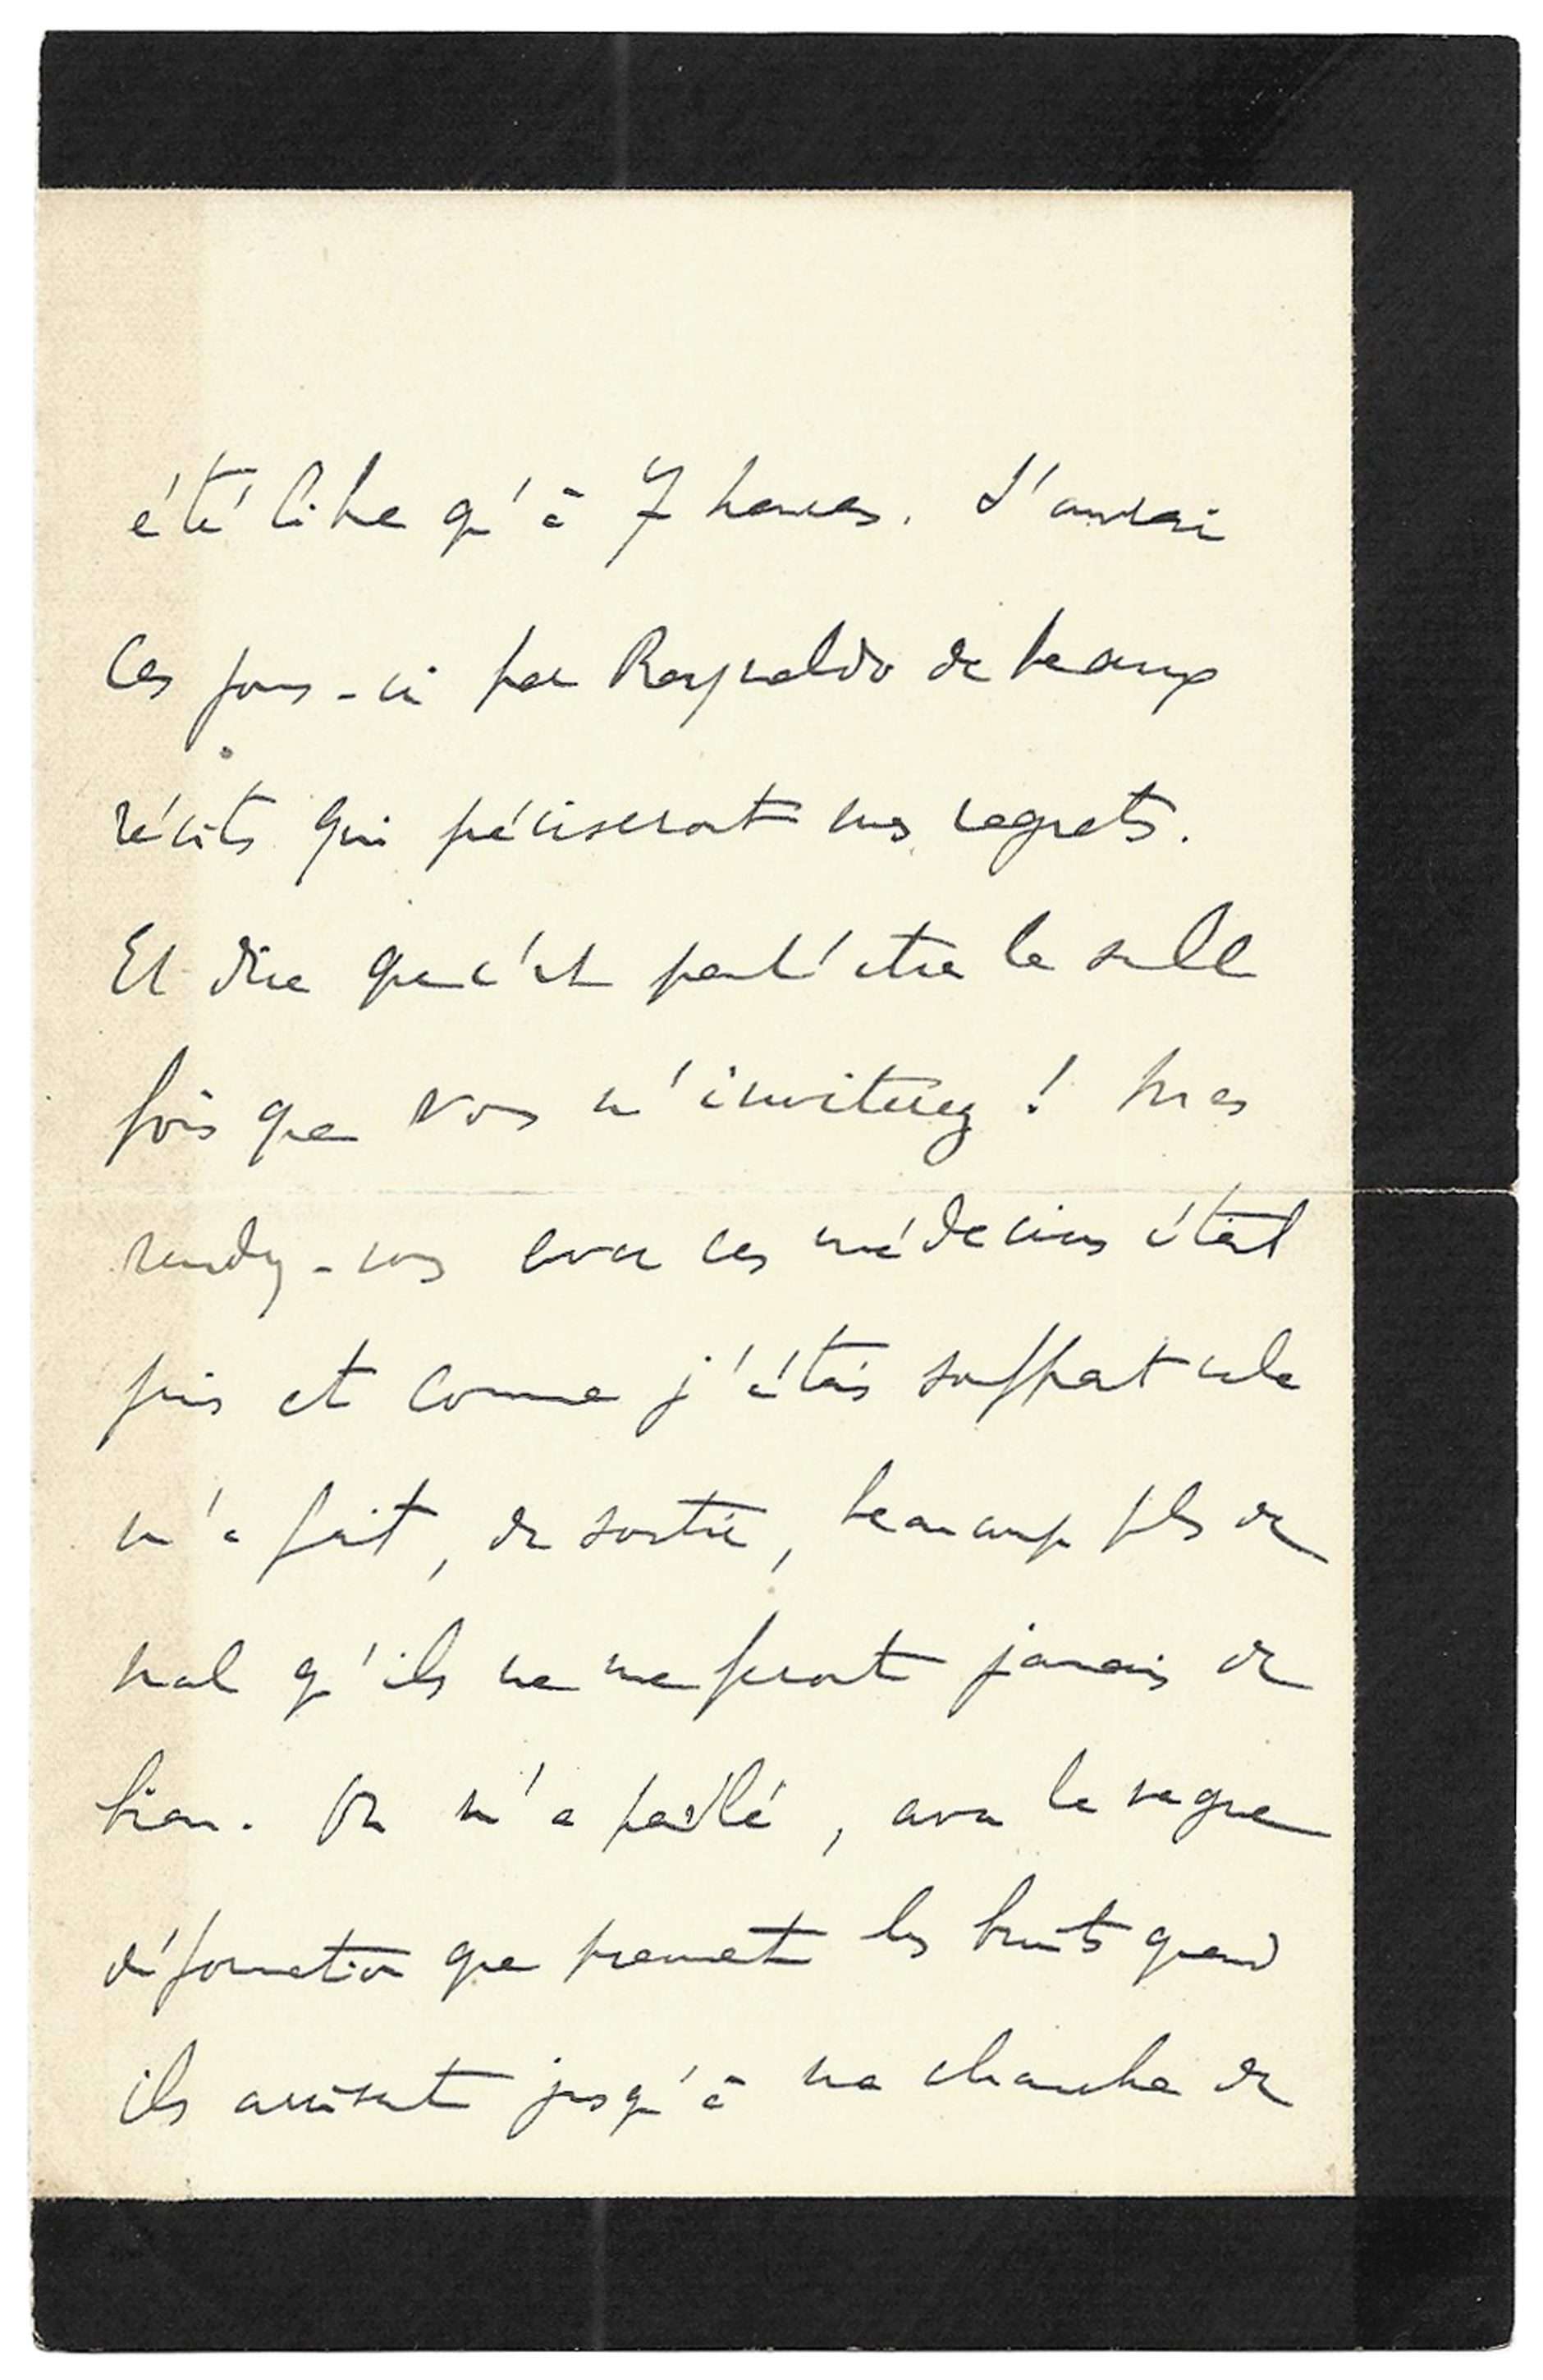 été libre qu'à 7 heures. J'aurai
ces jours-ci par Reynaldo de beaux
récits qui préciseront mes regrets.
Et dire que c'est peut'être la seule
fois que vous m'inviterez ! Mes
rendez-vous avec ces médecins était
pris et comme j'étais souffrant cela
m'a fait, de sortir, beaucoup plus de
mal qu'ils ne me feront jamais de
bien. On m'a parlé, avec la vague
déformation que prennent les bruits quand
ils arrivent jusqu'à ma chambre de